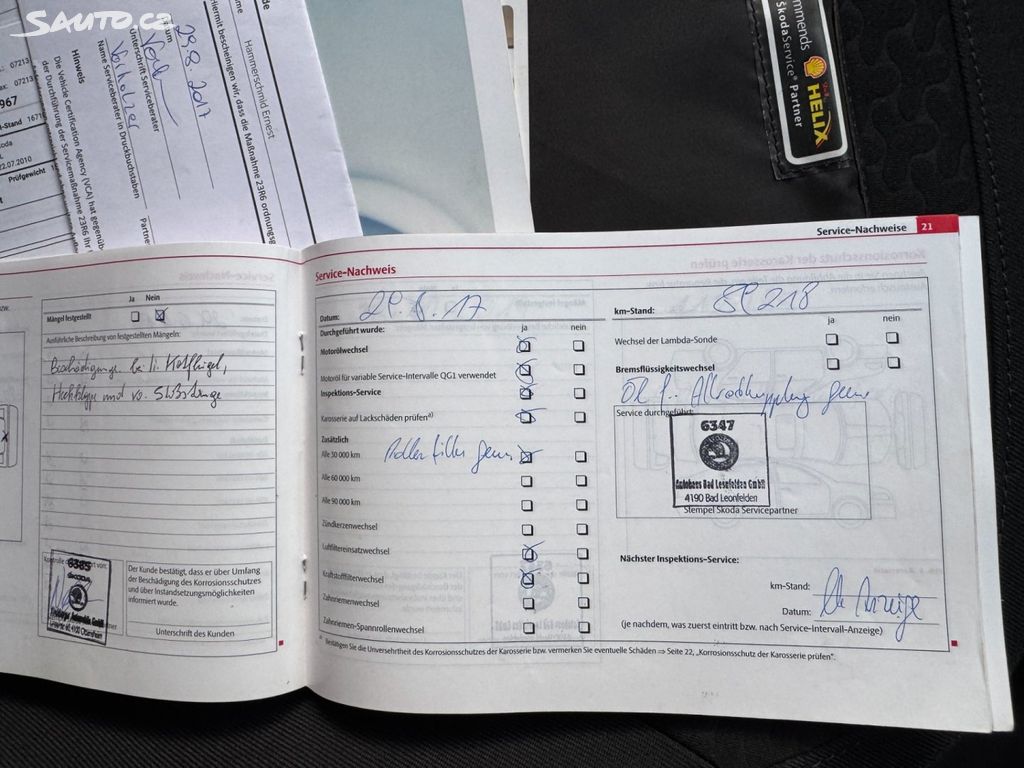 SAUTO.CZ
07213
ax: 07213
967
-Stand 1671
koda
22.07.2010
Prüfgewicht
Hinweis
Die Vehicle Certification Agency (VCA) hat gegenüb
der Durchführung der Servicemaßnahme 23R6 Ihr
Name Serviceberater in Druckbuchstaben
Unterschrift Serviceberater
29.8.2017
Partne
Hiermit bescheinigen wir, dass die Maßnahme 23R6 ordnungsg
Hammerschmid Ernest
ame
de
mmends
ŠkodaService® Partner
HELIX
Service-Nachweise 21
Ja Nein
Mängel festgestellt
Ausführliche Beschreibung von festgestellten Mängeln:
Beschädigung bei li. Kotflügel,
Heckklappe und vo. Stoßstange
6385
Der Kunde bestätigt, dass er über Umfang
der Beschädigung des Korrosionsschutzes
und über Instandsetzungsmöglichkeiten
informiert wurde.
Unterschrift des Kunden
Service-Nachweis
Datum: 29.8.17
Durchgeführt wurde: ja nein
Motorölwechsel
Motoröl für variable Service-Intervalle QG1 verwendet
Inspektions-Service
Karosserie auf Lackschäden prüfen a)
Zusätzlich
Alle 30 000 km Pollenfilter gew.
Alle 60 000 km
Alle 90 000 km
Zündkerzenwechsel
Luftfiltereinsatzwechsel
Kraftstofffilterwechsel
Zahnriemenwechsel
Zahnriemen-Spannrollenwechsel
km-Stand: 89218
ja nein
Wechsel der Lambda-Sonde
Bremsflüssigkeitswechsel
Öl f. Allradkupplung gew.
Service durchgeführt:
6347
Autohaus Bad Leonfelden GmbH
4190 Bad Leonfelden
Stempel Skoda Servicepartner
Nächster Inspektions-Service:
km-Stand:
Datum: lt. Anzeige
(je nachdem, was zuerst eintritt bzw. nach Service-Intervall-Anzeige)
a) Bestätigen Sie die Unversehrtheit des Korrosionsschutzes der Karosserie bzw. vermerken Sie eventuelle Schäden ⇒ Seite 22, „Korrosionsschutz der Karosserie prüfen".